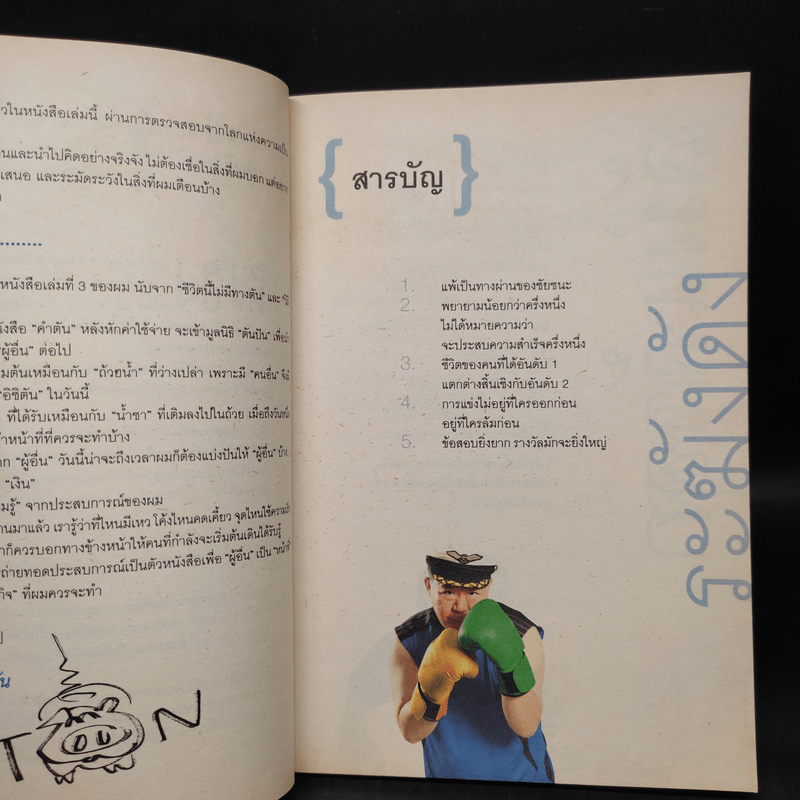 วในหนังสือเล่มนี้ ผ่านการตรวจสอบจากโลกแห่งความเป็น
านและนำไปคิดอย่างจริงจัง ไม่ต้องเชื่อในสิ่งที่ผมบอก แต่อยาก
เสนอ และระมัดระวังในสิ่งที่ผมเตือนบ้าง
หนังสือเล่มที่ 3 ของผม นับจาก "ชีวิตนี้ไม่มีทางตัน" และ
ังสือ "คำตัน" หลังหักค่าใช้จ่าย จะเข้ามูลนิธิ "ตันปัน"
"ผู้อื่น" ต่อไป
มต้นเหมือนกับ "ถ้วยน้ำ" ที่ว่างเปล่า เพราะมี "คนอื่น"
"อิชิตัน" ในวันนี้
ที่ได้รับเหมือนกับ "น้ำชา" ที่เติมลงไปในถ้วย เมื่อถึงวันหนึ่ง
ำหน้าที่ที่ควรจะทำบ้าง
าก "ผู้อื่น" วันนี้น่าจะถึงเวลาผมก็ต้องแบ่งปันให้ "ผู้อื่น" บ้าง
"เงิน"
มรู้" จากประสบการณ์ของผม
านมาแล้ว เรารู้ว่าที่ไหนมีเหว โค้งไหนคดเคี้ยว จุดไหนใช้ความเร็ว
าก็ควรบอกทางข้างหน้าให้คนที่กำลังจะเริ่มต้นเดินได้รับรู้
ถ่ายทอดประสบการณ์เป็นตัวหนังสือเพื่อ "ผู้อื่น" เป็น
กิจ" ที่ผมควรจะทำ
ัน
TON
{ สารบัญ }
1. แพ้เป็นทางผ่านของชัยชนะ
2. พยายามน้อยกว่าครึ่งหนึ่ง
ไม่ได้หมายความว่า
จะประสบความสำเร็จครึ่งหนึ่ง
3. ชีวิตของคนที่ได้อันดับ 1
แตกต่างสิ้นเชิงกับอันดับ 2
4. การแข่งไม่อยู่ที่ใครออกก่อน
อยู่ที่ใครล้มก่อน
5. ข้อสอบยิ่งยาก รางวัลมักจะยิ่งใหญ่
ระฆังดัง